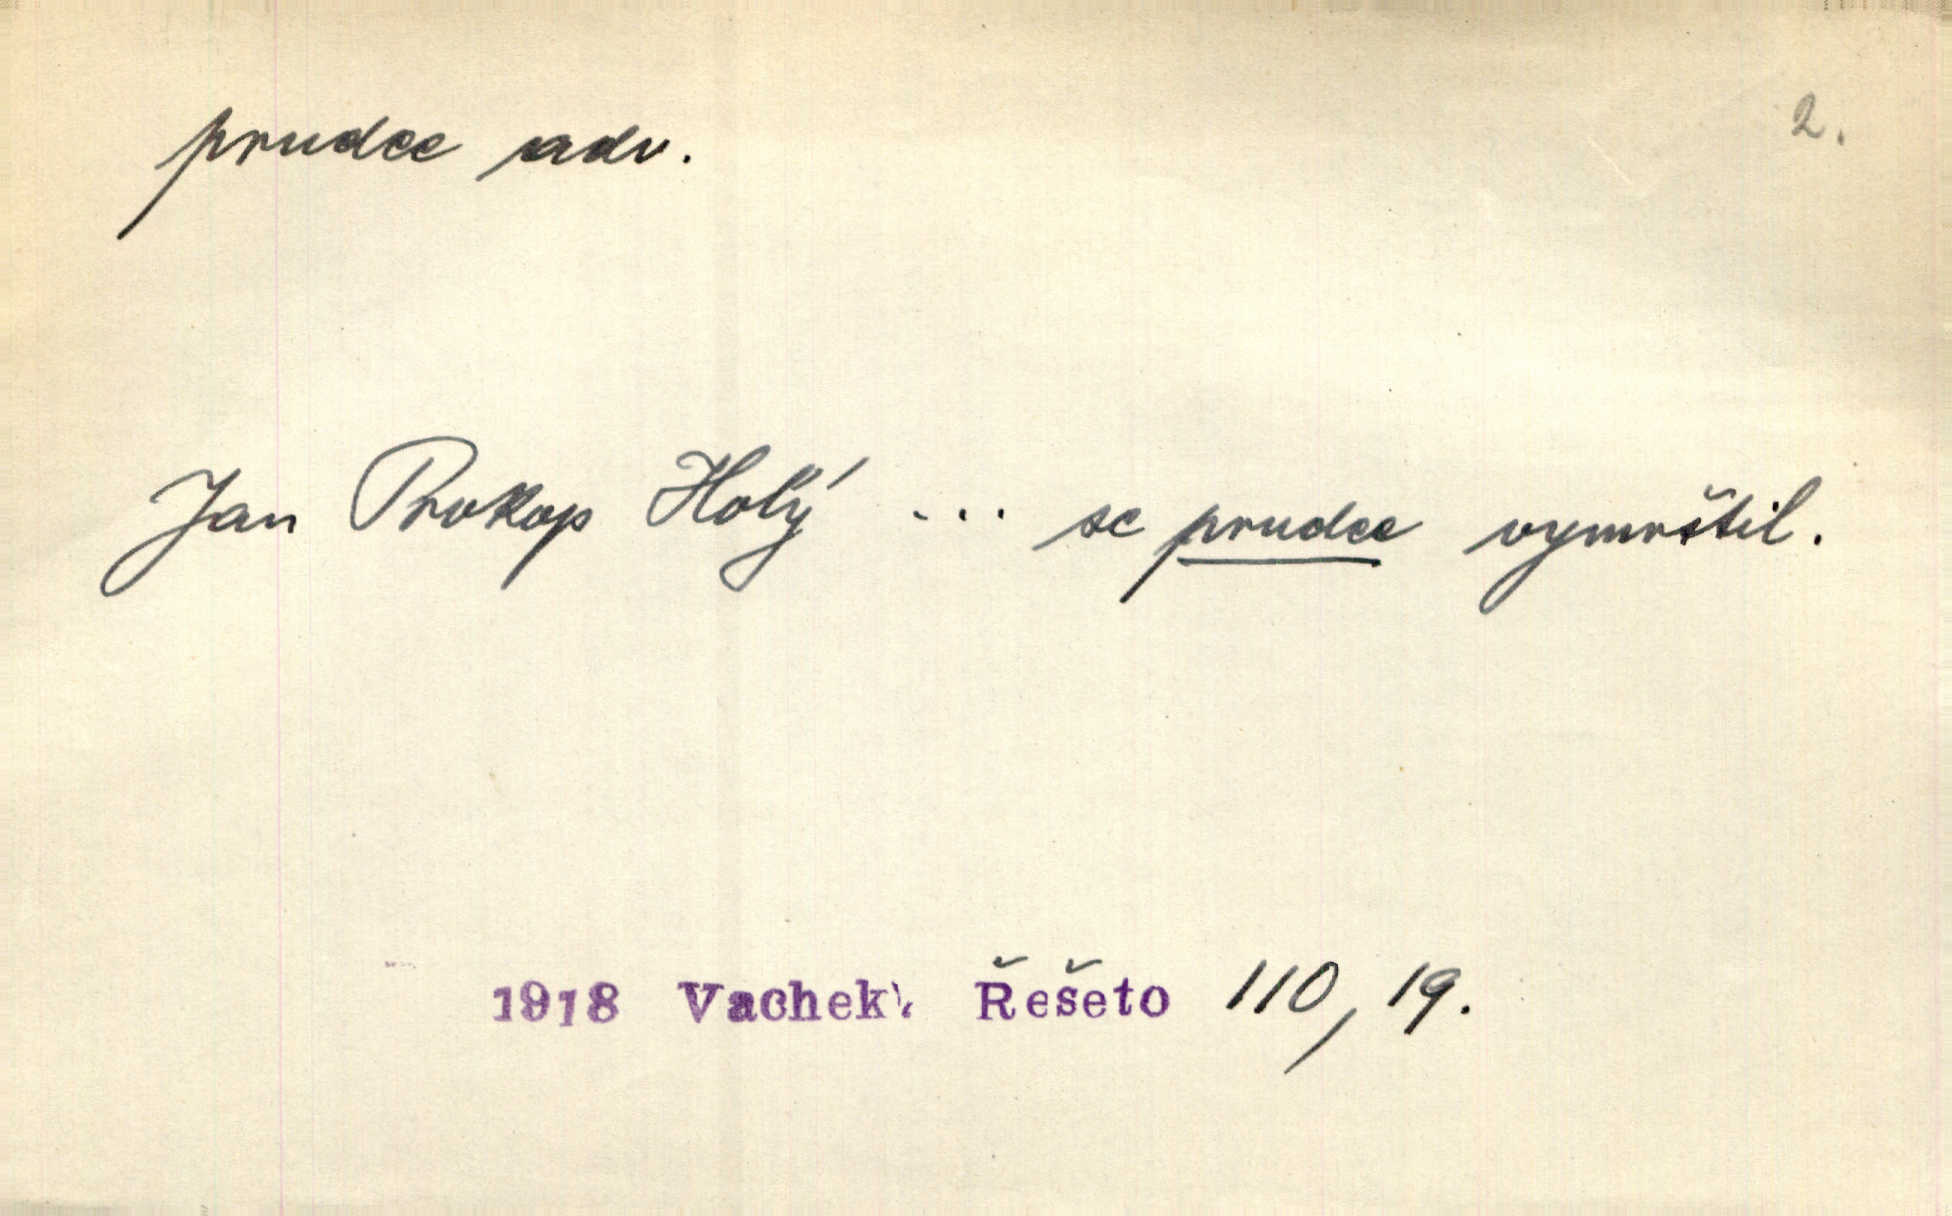 prudce adv. 2.
Jan Prokop Holý ... se prudce vymrštil.
1918 Vachek Řešeto 110, 19.